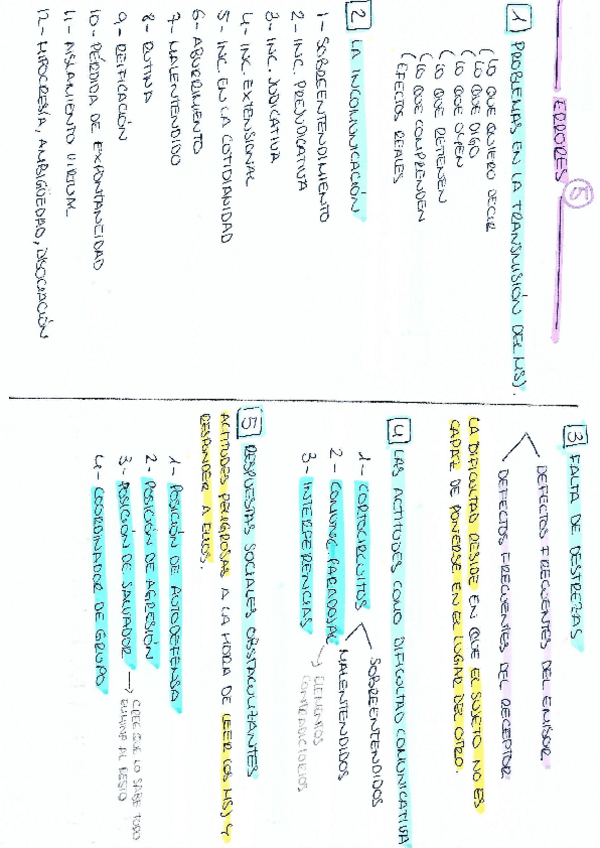 ERRORES 5
1 PROBLEMAS EN LA TRANSMISIÓN DEL MSJ.
(LO QUE QUIERO DECIR
(LO QUE DIGO
(LO QUE OYEN
(LO QUE RETIENEN
(LO QUE COMPRENDEN
(EFECTOS REALES
2 LA INCOMUNICACIÓN
1- SOBREENTENDIMIENTO
2- INC. PREJUDICATIVA
3- INC. JUDICATIVA
4- INC. EXTENSIONAL
5- INC. EN LA COTIDIANIDAD
6- ABURRIMIENTO
7- MALENTENDIDO
8- RUTINA
9- REIFICACIÓN
10- PÉRDIDA DE EXPONTANEIDAD
11- AISLAMIENTO
12- HIPOCRESÍA, AMBIGÜEDAD, DISOCIACIÓN
3 FALTA DE DESTREZAS
DEFECTOS FRECUENTES DEL EMISOR
DEFECTOS FRECUENTES DEL RECEPTOR
LA DIFICULTAD RESIDE EN QUE EL SUJETO NO ES
CAPAZ DE PONERSE EN EL LUGAR DEL OTRO.
4 LAS ACTITUDES COMO DIFICULTAD COMUNICATIVA
1- CORTOCIRCUITOS
SOBREENTENDIDOS
MALENTENDIDOS
2- COMUNIC. PARADOJAL → ELEMENTOS
CONTRADICTORIOS
3- INTERFERENCIAS
5 RESPUESTAS SOCIALES OBSTACULIZANTES
ACTITUDES PELIGROSAS A LA HORA DE LEER LOS MSJ Y
RESPONDER A ELLOS.
1- POSICIÓN DE AUTODEFENSA
2- POSICIÓN DE AGRESIÓN
3- POSICIÓN DE SALVADOR → CREE QUE LO SABE TODO
AL RESTO
4- COORDINADOR DE GRUPO